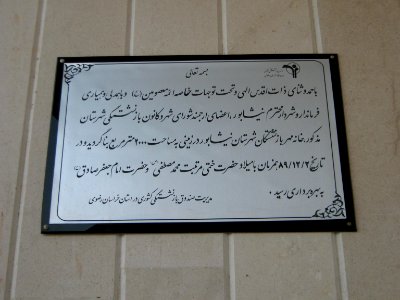 بسمه تعالی
با حمد و ثنای ذات اقدس الهی و تحت توجهات خاصه ائمه معصومین (ع) و با همدلی و همیاری
فرماندار و شهردار محترم نیشابور، اعضای ارجمند شورای شهر و کانون بازنشستگی شهرستان
مذکور، خانه مهر بازنشستگان شهرستان نیشابور در زمینی به مساحت ۲۰۰۰ متر مربع بنا گردید و در
تاریخ ۸۹/۱۲/۲ همزمان با میلاد حضرت ختمی مرتبت محمد مصطفی و حضرت امام جعفر صادق (ع)
به بهره برداری رسید.
مدیریت صندوق بازنشستگی کشوری در استان خراسان رضوی